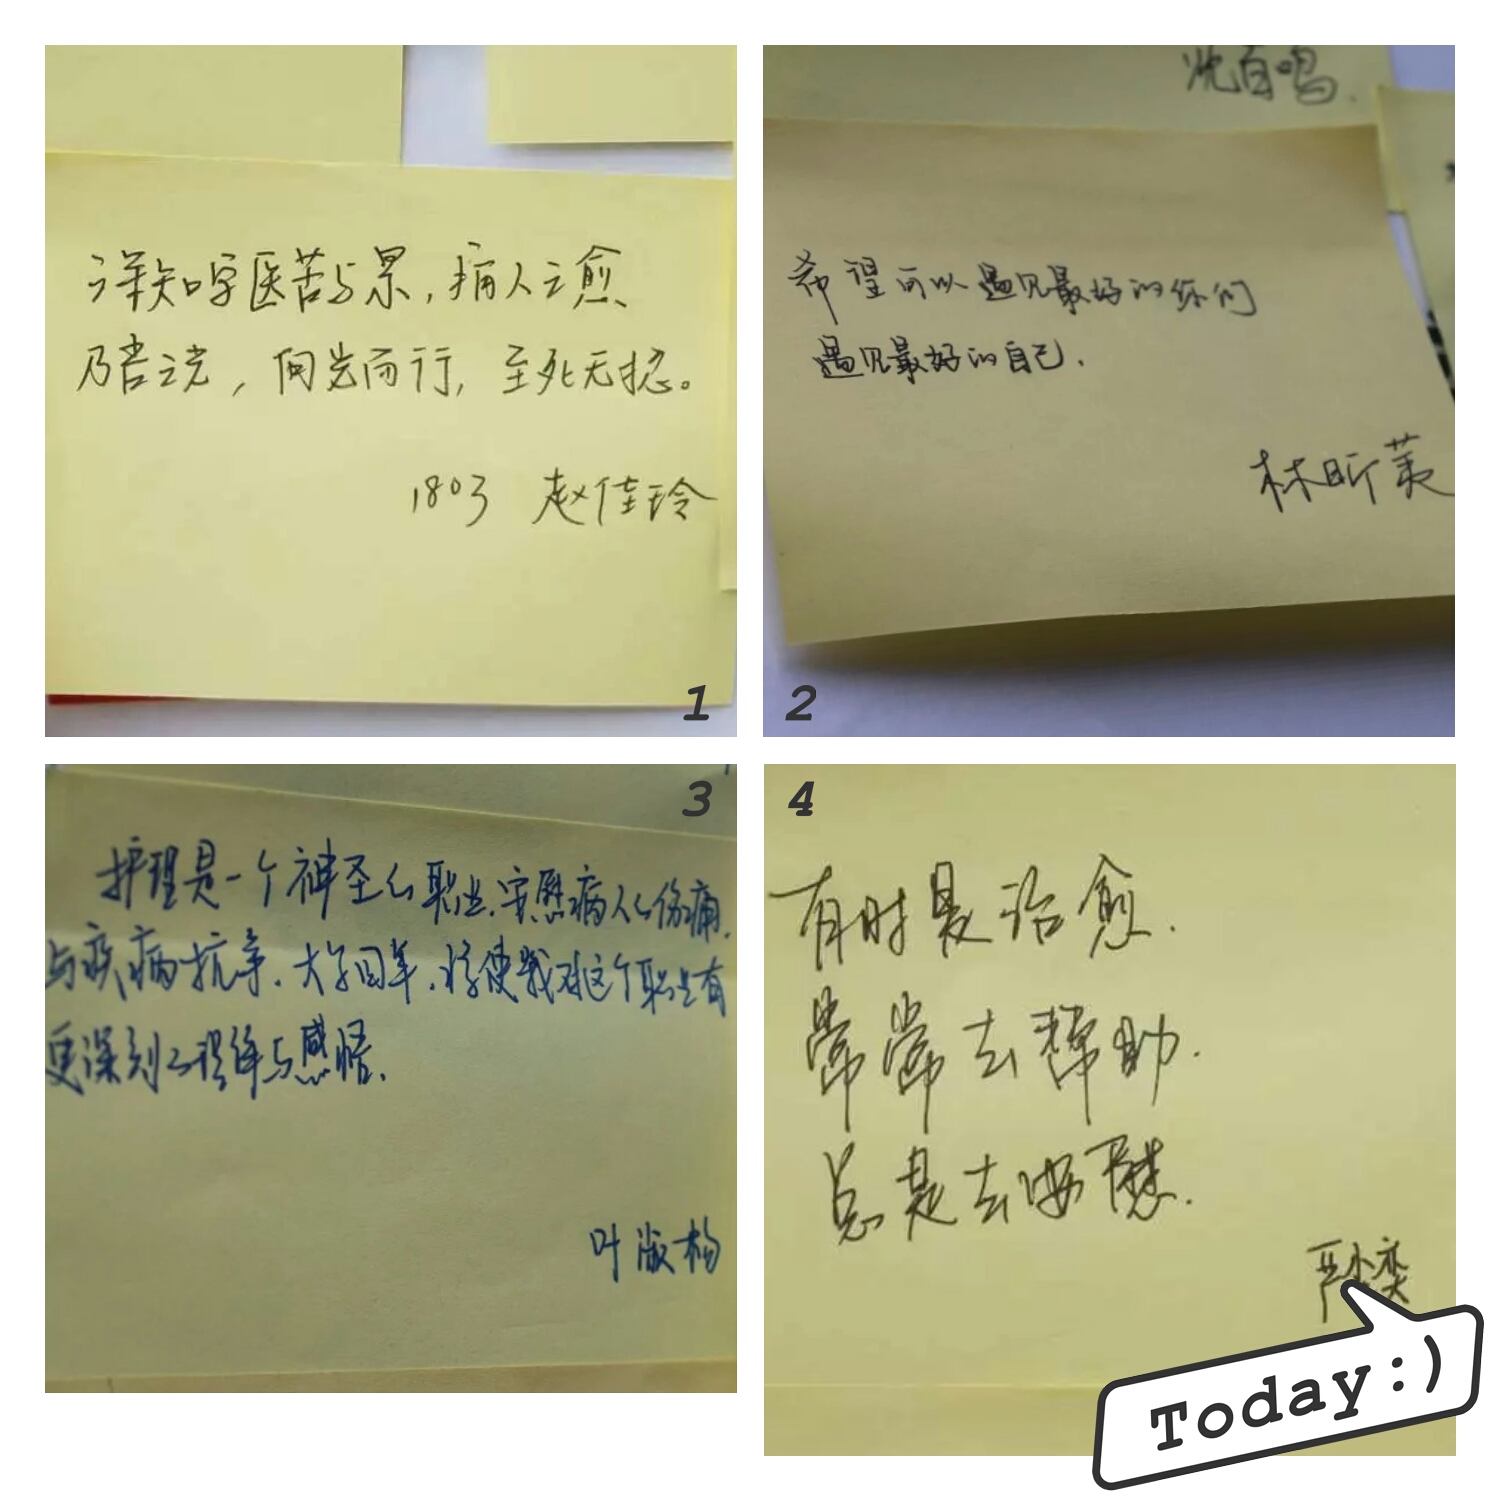 详知学医苦与累，病人之愈
乃吾之光，向光而行，至死无憾。
1803 赵佳玲
1
沈百鸣
希望可以遇见最好的你们
遇见最好的自己.
林昕荑
2
3
护理是一个神圣的职业.安慰病人的伤痛.
与疾病抗争.大学四年.将使我对这个职业有
更深刻的理解与感悟.
叶淑杨
4
有时是治愈.
常常去帮助.
总是去安慰.
严 奕
Today:)